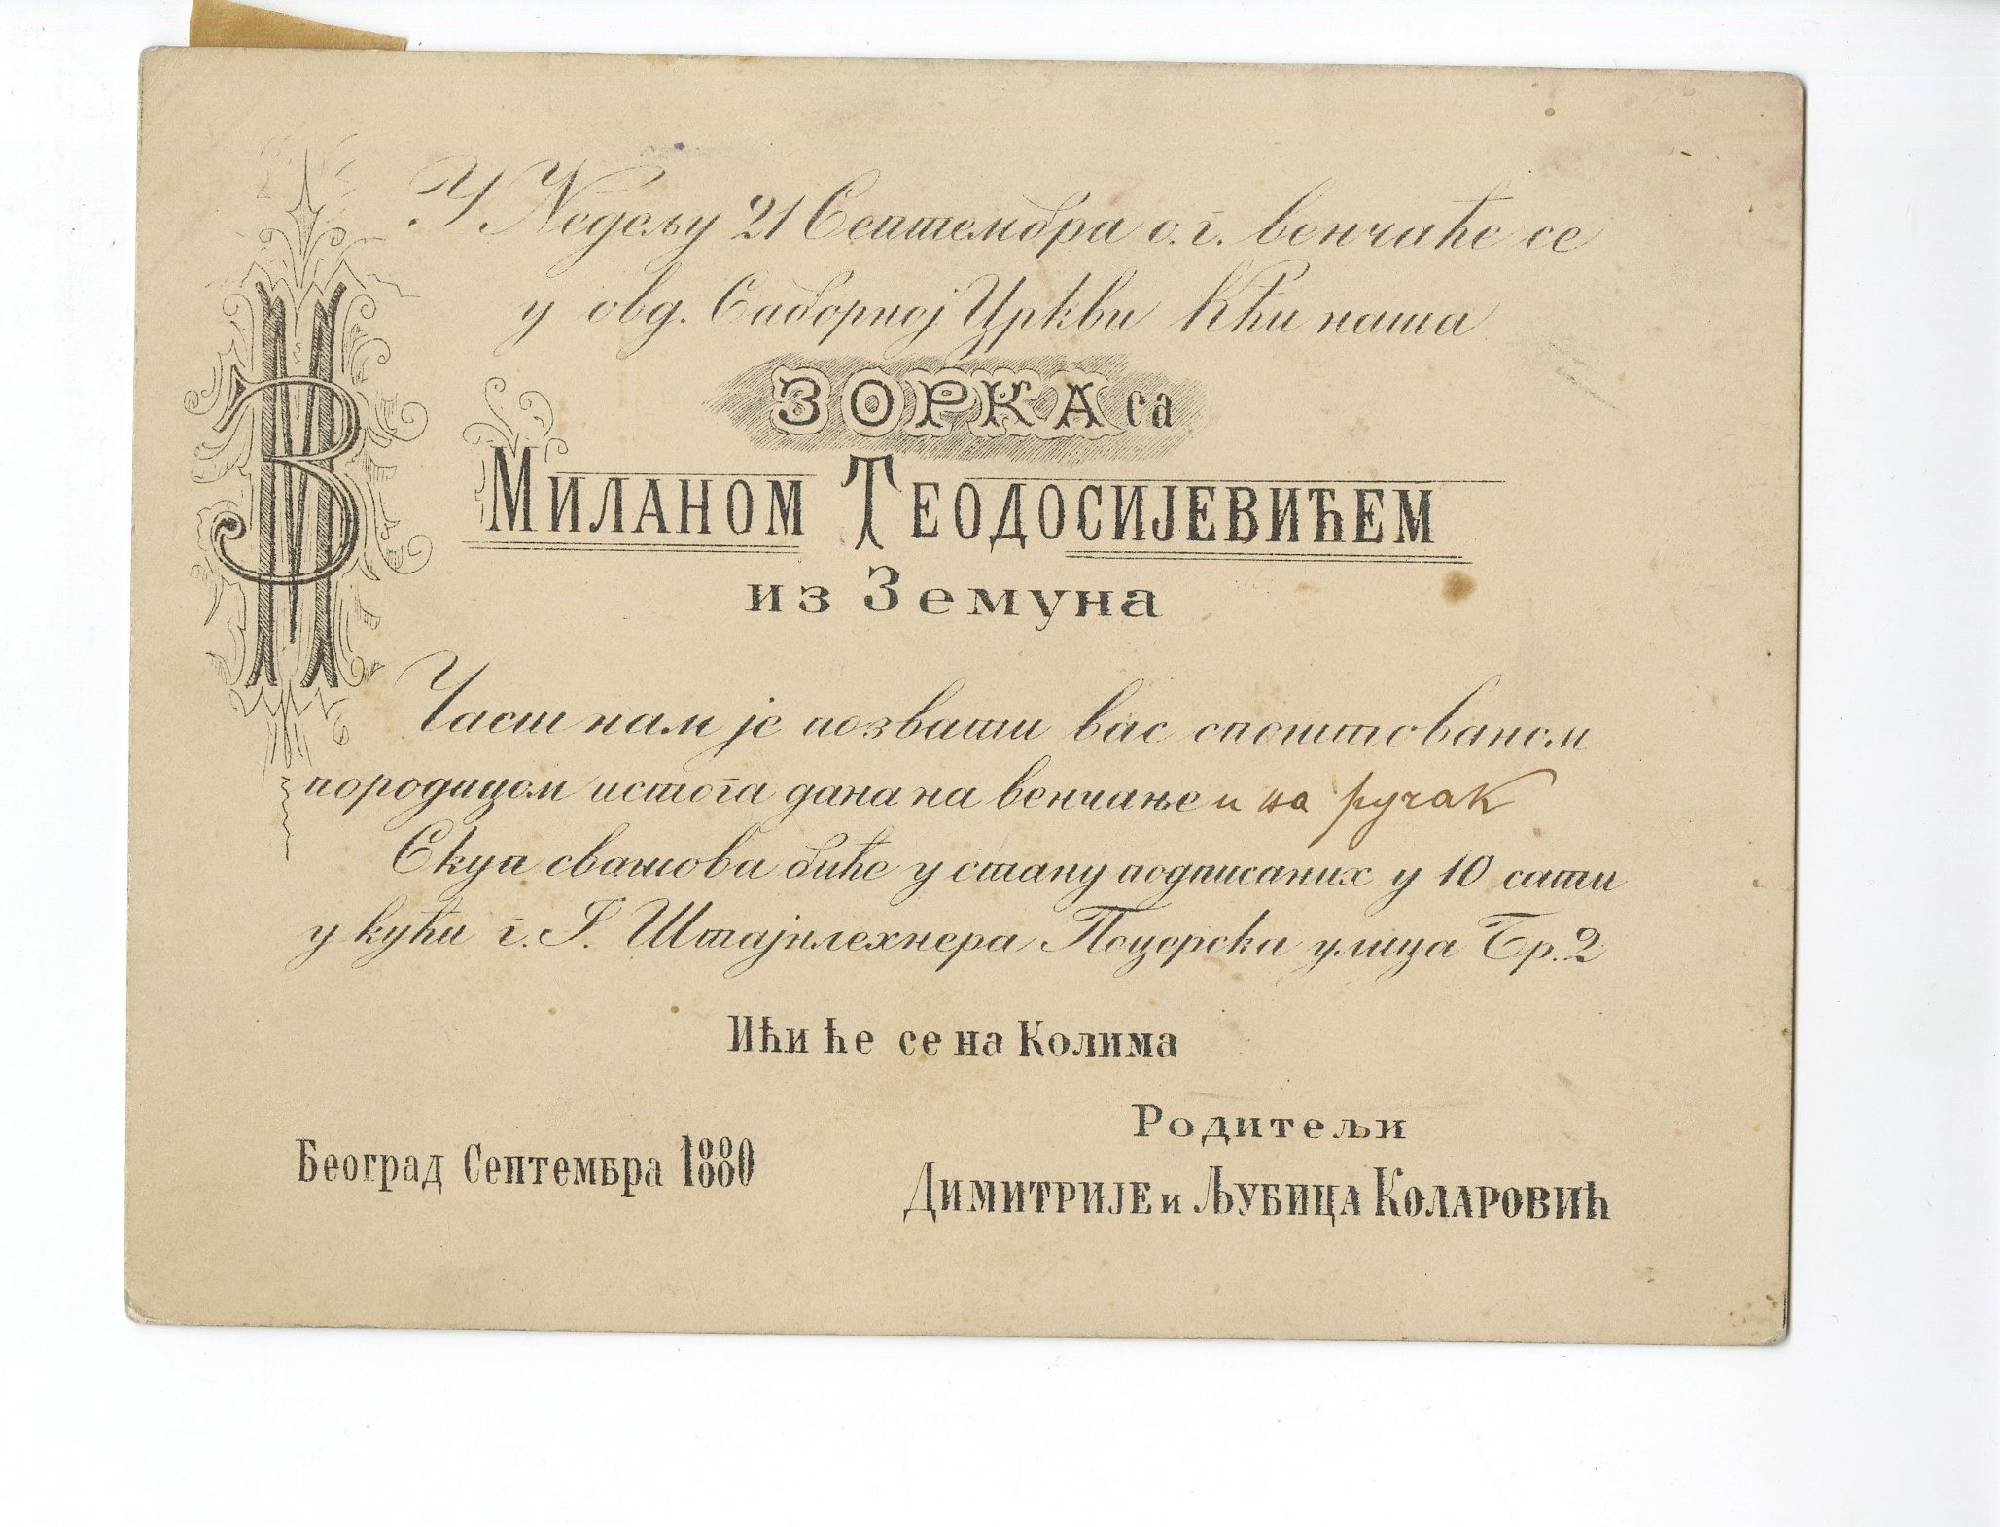 У Недељу 21 Септембра о.г. венчаће се
у овд. Саборној Цркви Кћи наша
ЗОРКА са
МИЛАНОМ ТЕОДОСИЈЕВИЋЕМ
из Земуна
Част нам је позвати вас споштованом
породицом истога дана на венчање и на ручак
Скуп сватова биће у стану подписаних у 10 сати
у кући г. Г. Штајнлехнера Поцерска улица Бр. 2
Ићи ће се на Колима
Родитељи
Београд Септембра 1880
ДИМИТРИЈЕ и ЉУБИЦА КОЛАРОВИЋ